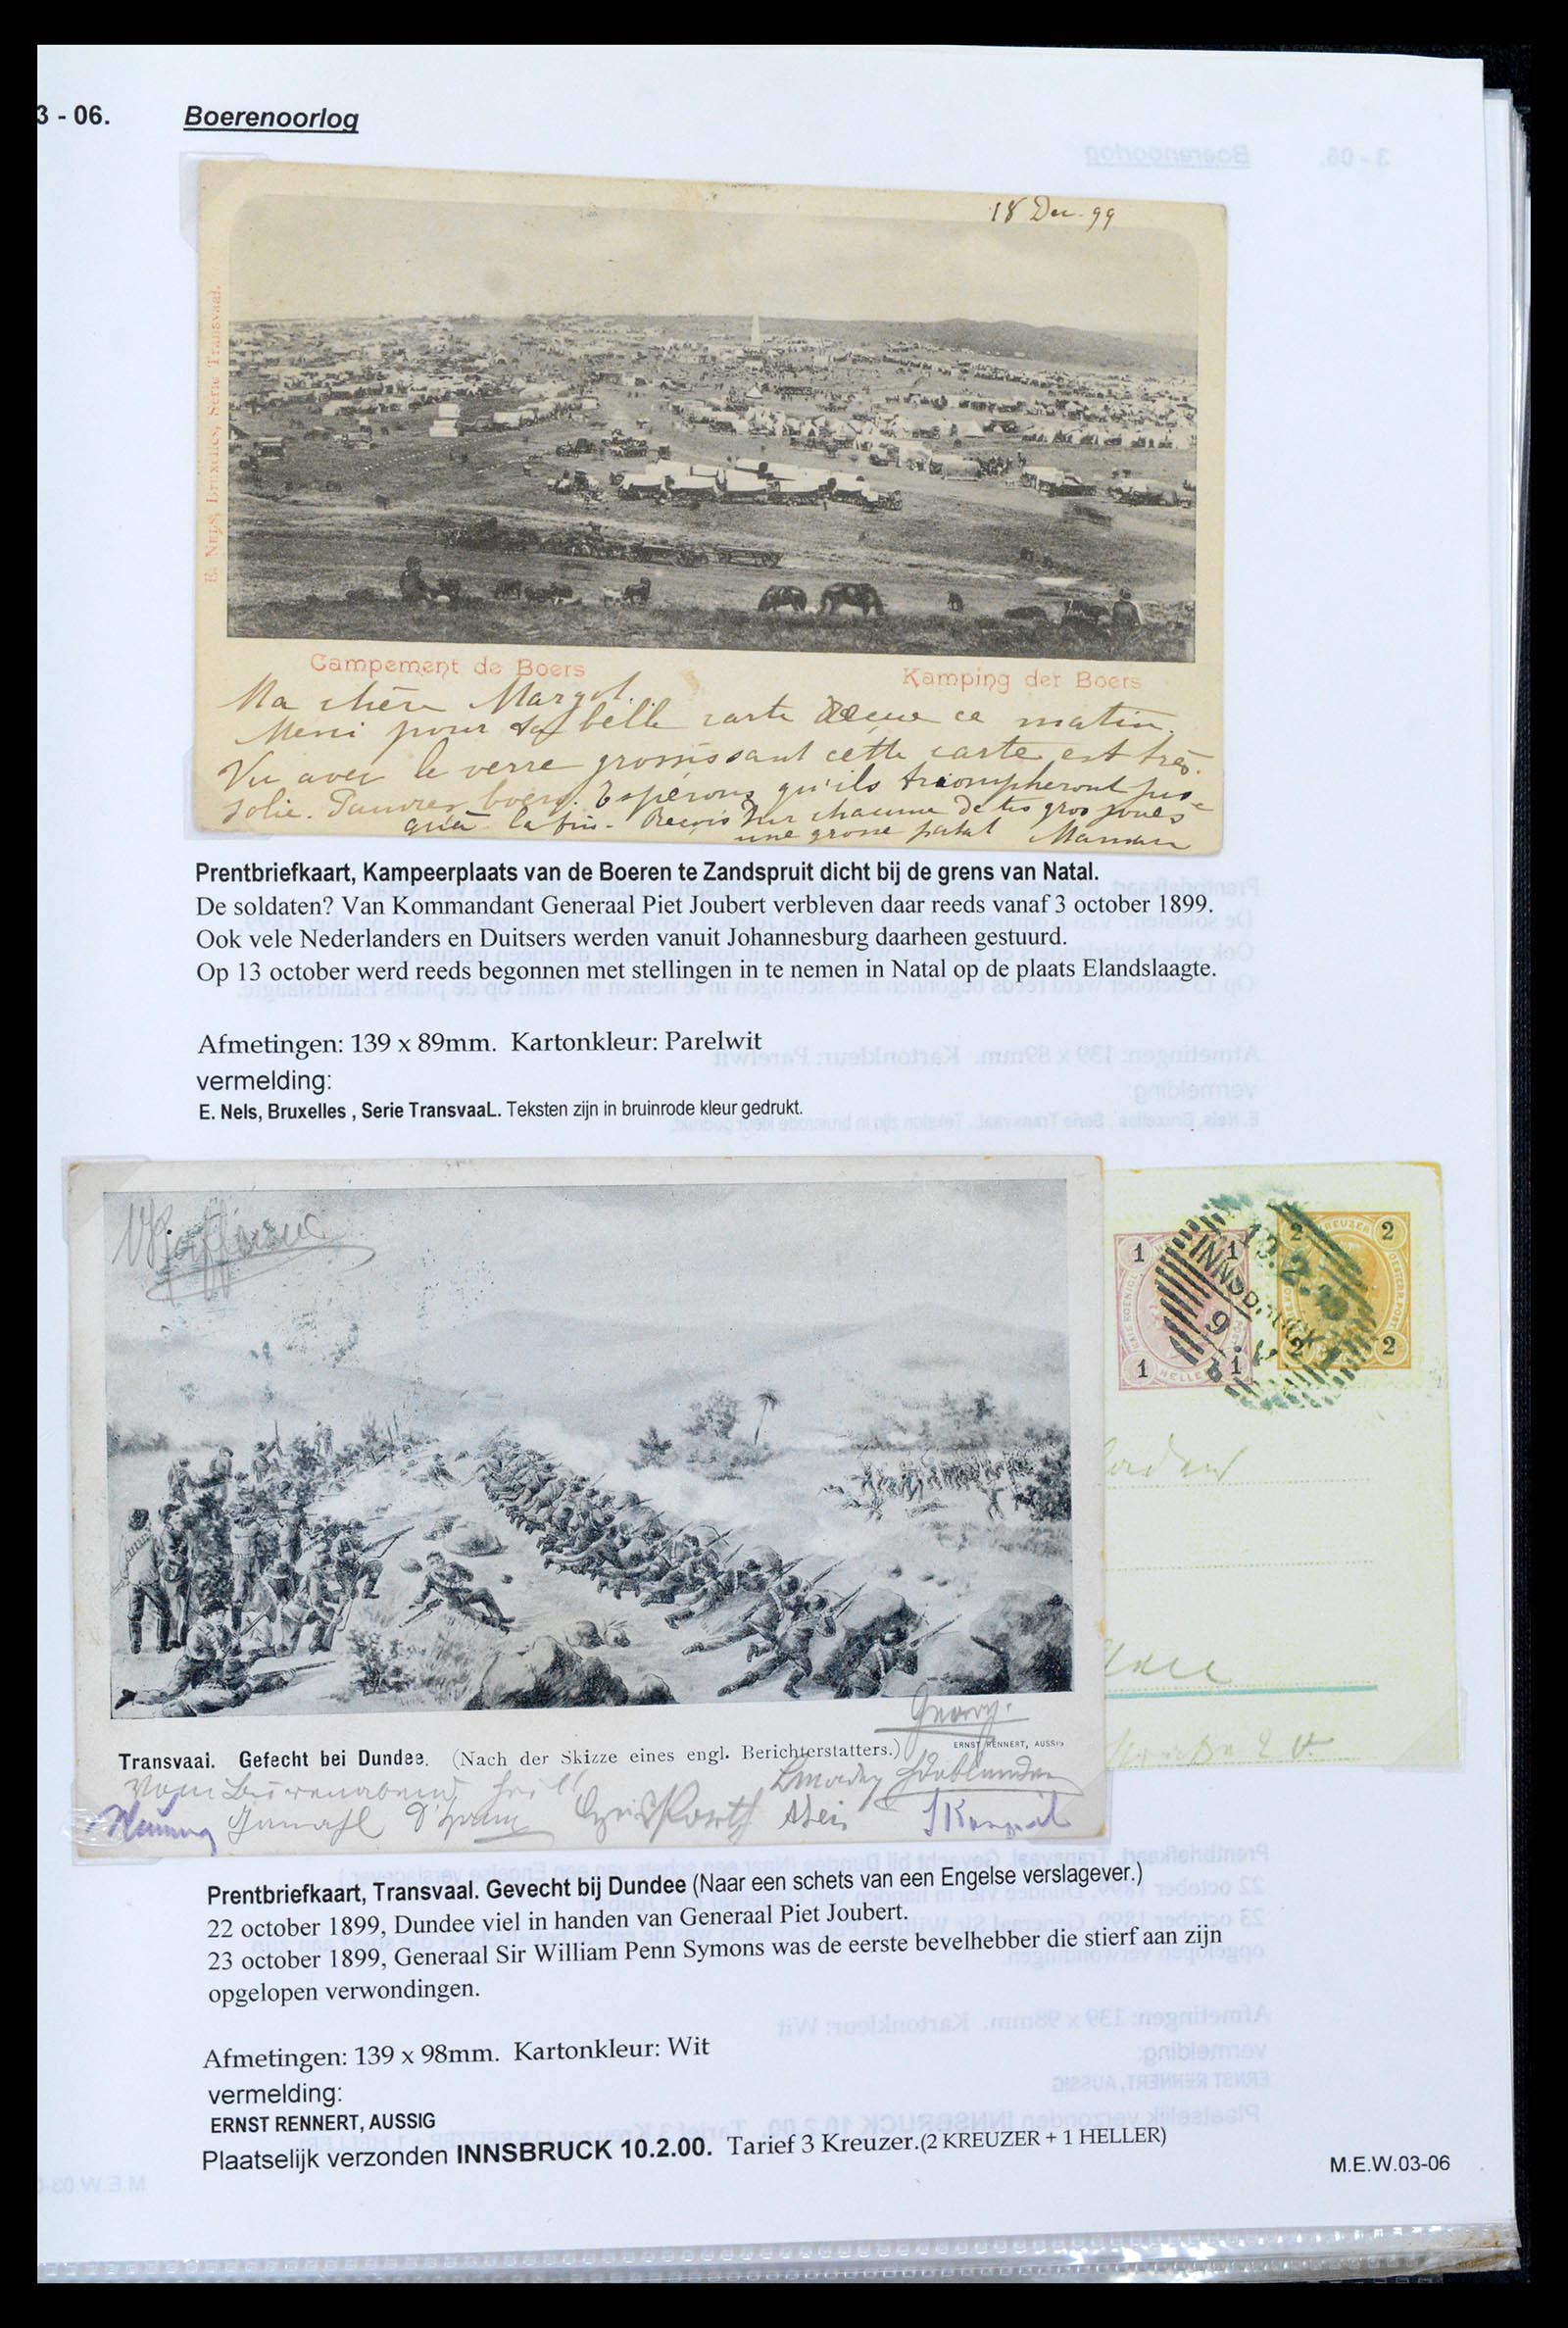 3 - 06. Boerenoorlog
18 Dec. 99
E. NELS, Bruxelles, Serie Transvaal.
Campement de Boers Kamping der Boers
Ma chère Margot.
Merci pour ta belle carte recue ce matin.
Vu avec le verre grossissant cette carte est très
jolie. Pauvres boers. Espérons qu'ils triompheront jus-
qu'à la fin. Reçois sur chacune de tes grosses joues
une grosse Maman
Prentbriefkaart, Kampeerplaats van de Boeren te Zandspruit dicht bij de grens van Natal.
De soldaten? Van Kommandant Generaal Piet Joubert verbleven daar reeds vanaf 3 october 1899.
Ook vele Nederlanders en Duitsers werden vanuit Johannesburg daarheen gestuurd.
Op 13 october werd reeds begonnen met stellingen in te nemen in Natal op de plaats Elandslaagte.
Afmetingen: 139 x 89mm. Kartonkleur: Parelwit
vermelding:
E. Nels, Bruxelles , Serie TransvaaL. Teksten zijn in bruinrode kleur gedrukt.
1 1 1 1 HELLER
2 KREUZER 2 2 2
INNSBRUCK
Georg.
Transvaal. Gefecht bei Dundee. (Nach der Skizze eines engl. Berichterstatters.)
ERNST RENNERT, AUSSIG
Vom Burenabend Heil!
Prentbriefkaart, Transvaal. Gevecht bij Dundee (Naar een schets van een Engelse verslagever.)
22 october 1899, Dundee viel in handen van Generaal Piet Joubert.
23 october 1899, Generaal Sir William Penn Symons was de eerste bevelhebber die stierf aan zijn
opgelopen verwondingen.
Afmetingen: 139 x 98mm. Kartonkleur: Wit
vermelding:
ERNST RENNERT, AUSSIG
Plaatselijk verzonden INNSBRUCK 10.2.00. Tarief 3 Kreuzer.(2 KREUZER + 1 HELLER)
M.E.W.03-06